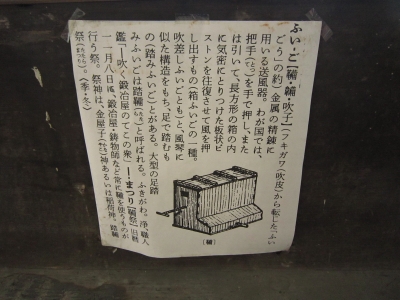 ふい‐ご【鞴・鞴吹子】(フキガワ(吹皮)から転じた「ふい
ごう」の約)金属の精錬に
用いる送風器。わが国では、
把手(とって)を手で押し、また
は引いて、長方形の箱の内
に気密にとりつけた板状ピ
ストンを往復させて風を押
し出すもの(箱ふいごの一種。
吹差しふいごとも)と、風琴に
似た構造をもち、足で踏むも
の(踏みふいご)とがある。大型の足踏
みふいごは踏鞴(たたら)と呼ばれる。ふきがわ。浄、職人
鑑「―吹く鍛冶屋のてこの衆」―‐まつり【鞴祭】旧暦
一一月八日に、鍛冶屋・鋳物師など常に鞴を使うものが
行う祭。祭神は、金屋子神あるいは稲荷神。踏鞴
祭(たたらまつり)。〈季・冬〉
[鞴]